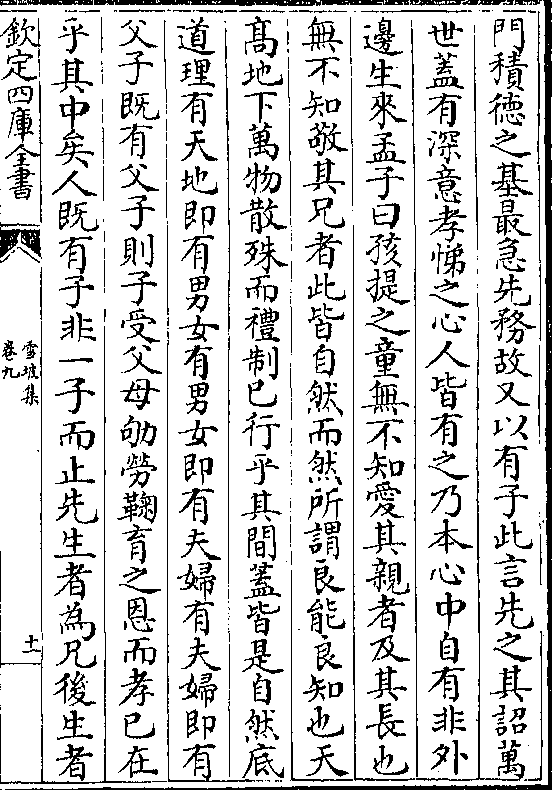 門積德之基最急先務故又以有子此言先之其詔萬
世蓋有深意孝悌之心人皆有之乃本心中自有非外
邊生來孟子曰孩提之童無不知愛其親者及其長也
無不知敬其兄者此皆自然而然所謂良能良知也天
髙地下萬物散殊而禮制已行乎其間蓋皆是自然底
道理有天地即有男女有男女即有夫婦有夫婦即有
父子既有父子則子受父母劬勞鞠育之恩而孝已在
乎其中矣人既有子非一子而止先生者為兄後生者
欽定四庫全書
雪坡集
卷九
十一